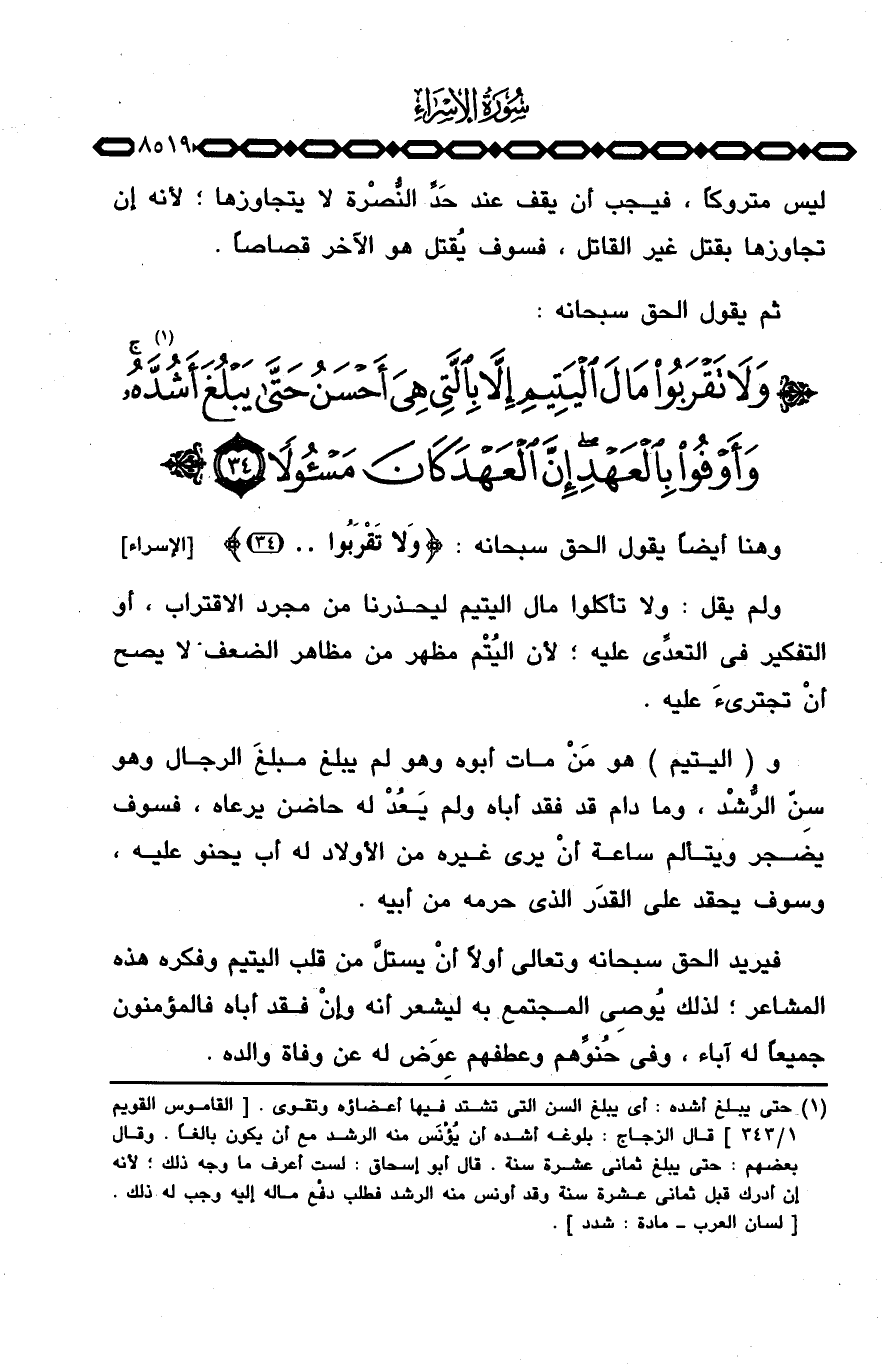 سُورَةُ الإِسْرَاءِ
٨٥١٩
ليس متروكاً ، فيجب أن يقف عند حَدَّ النُّصْرة لا يتجاوزها ؛ لأنه إن
تجاوزها بقتل غير القاتل ، فسوف يُقتل هو الآخر قصاصاً .
ثم يقول الحق سبحانه :
﴿ وَلَا تَقْرَبُوا۟ مَالَ ٱلْيَتِيمِ إِلَّا بِٱلَّتِى هِىَ أَحْسَنُ حَتَّىٰ يَبْلُغَ أَشُدَّهُۥ (١) ۚ
وَأَوْفُوا۟ بِٱلْعَهْدِ ۖ إِنَّ ٱلْعَهْدَ كَانَ مَسْـُٔولًا ٣٤ ﴾
وهنا أيضاً يقول الحق سبحانه : ﴿ وَلا تَقْرَبُوا .. (٣٤) ﴾ [الإسراء]
ولم يقل : ولا تأكلوا مال اليتيم ليحذرنا من مجرد الاقتراب ، أو
التفكير فى التعدِّى عليه ؛ لأن اليُتْم مظهر من مظاهر الضعف لا يصح
أنْ تجترىءَ عليه .
و ( اليتيم ) هو مَنْ مات أبوه وهو لم يبلغ مبلغَ الرجال وهو
سنّ الرُّشْد ، وما دام قد فقد أباه ولم يَعُدْ له حاضن يرعاه ، فسوف
يضجر ويتألم ساعة أنْ يرى غيره من الأولاد له أب يحنو عليه ،
وسوف يحقد على القدَر الذى حرمه من أبيه .
فيريد الحق سبحانه وتعالى أولاً أنْ يستلَّ من قلب اليتيم وفكره هذه
المشاعر ؛ لذلك يُوصِى المجتمع به ليشعر أنه وإنْ فقد أباه فالمؤمنون
جميعاً له آباء ، وفى حُنوِّهم وعطفهم عِوَض له عن وفاة والده .
(١) حتى يبلغ أشده : أى يبلغ السن التى تشتد فيها أعضاؤه وتقوى . [ القاموس القويم
٣٤٣/١ ] قال الزجاج : بلوغه أشده أن يُؤْنَس منه الرشد مع أن يكون بالغاً . وقال
بعضهم : حتى يبلغ ثمانى عشرة سنة . قال أبو إسحاق : لست أعرف ما وجه ذلك ؛ لأنه
إن أدرك قبل ثمانى عشرة سنة وقد أونس منه الرشد فطلب دفْع ماله إليه وجب له ذلك .
[ لسان العرب - مادة : شدد ] .